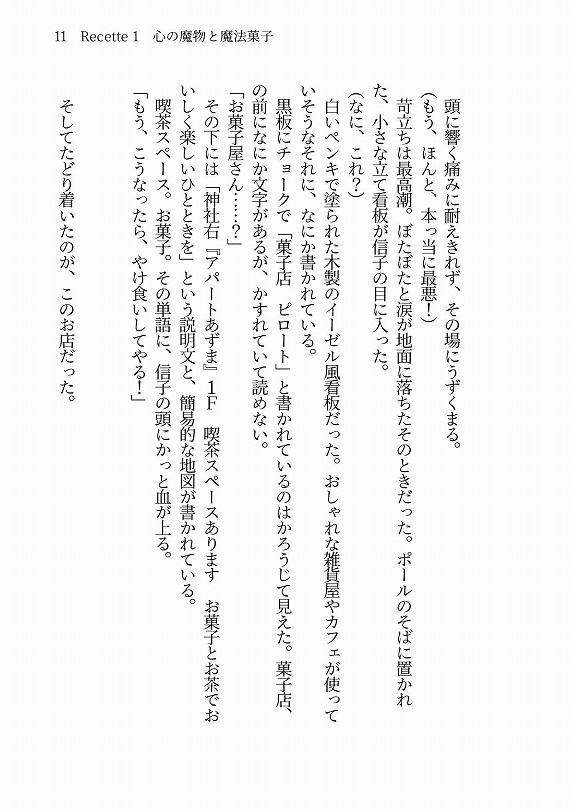 11　Recette 1　心の魔物と魔法菓子
頭に響く痛みに耐えきれず、その場にうずくまる。
(もう、ほんと、本っ当に最悪！)
苛立ちは最高潮。ぼたぼたと涙が地面に落ちたそのときだった。ポールのそばに置かれ
た、小さな立て看板が信子の目に入った。
(なに、これ？)
白いペンキで塗られた木製のイーゼル風看板だった。おしゃれな雑貨屋やカフェが使って
いそうなそれに、なにか書かれている。
黒板にチョークで「菓子店　ピロート」と書かれているのはかろうじて見えた。菓子店、
の前になにか文字があるが、かすれていて読めない。
「お菓子屋さん……？」
その下には「神社右『アパートあずま』１Ｆ　喫茶スペースあります　お菓子とお茶でお
いしく楽しいひとときを」という説明文と、簡易的な地図が書かれている。
喫茶スペース。お菓子。その単語に、信子の頭にかっと血が上る。
「もう、こうなったら、やけ食いしてやる！」
そしてたどり着いたのが、このお店だった。